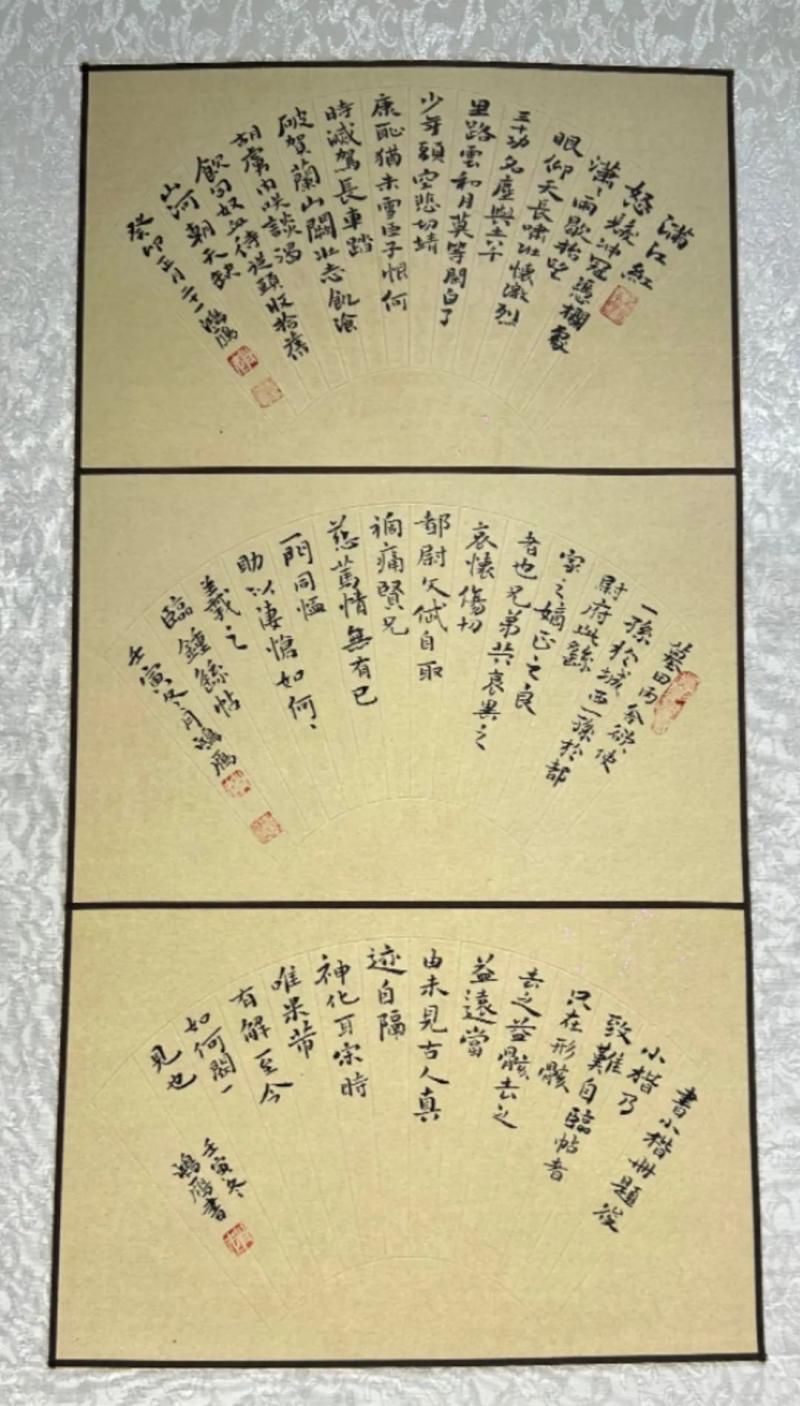 滿江紅
怒髮沖冠憑欄處
瀟〻雨歇抬望
眼仰天長嘯壯懷激烈
三十功名塵與土八千
里路雲和月莫等閒白了
少年頭空悲切靖
康恥猶未雪臣子恨何
時滅駕長車踏
破賀蘭山闕壯志飢飡
胡虜肉笑談渴
飲匈奴血待從頭收拾舊
山河朝天缺
癸卯正月二十一鴻雁
墓田丙舍欲使
一孫於城西一孫於都
尉府此繇
家之嫡正之良
者也兄弟共哀異之
哀懷傷切
都尉文俶自取
禍痛賢兄
慈篤情無有已
一門同恤
助以悽愴如何〻
義之
臨鍾繇帖
壬寅冬月鴻雁
書小楷冊題後
小楷乃
致難自臨帖者
只在形骸
去之益骸去之
益遠當
由未見古人真
迹自隔
神化耳宋時
唯米芾
有解至今
如何閣一
見也
壬寅冬
鴻雁書